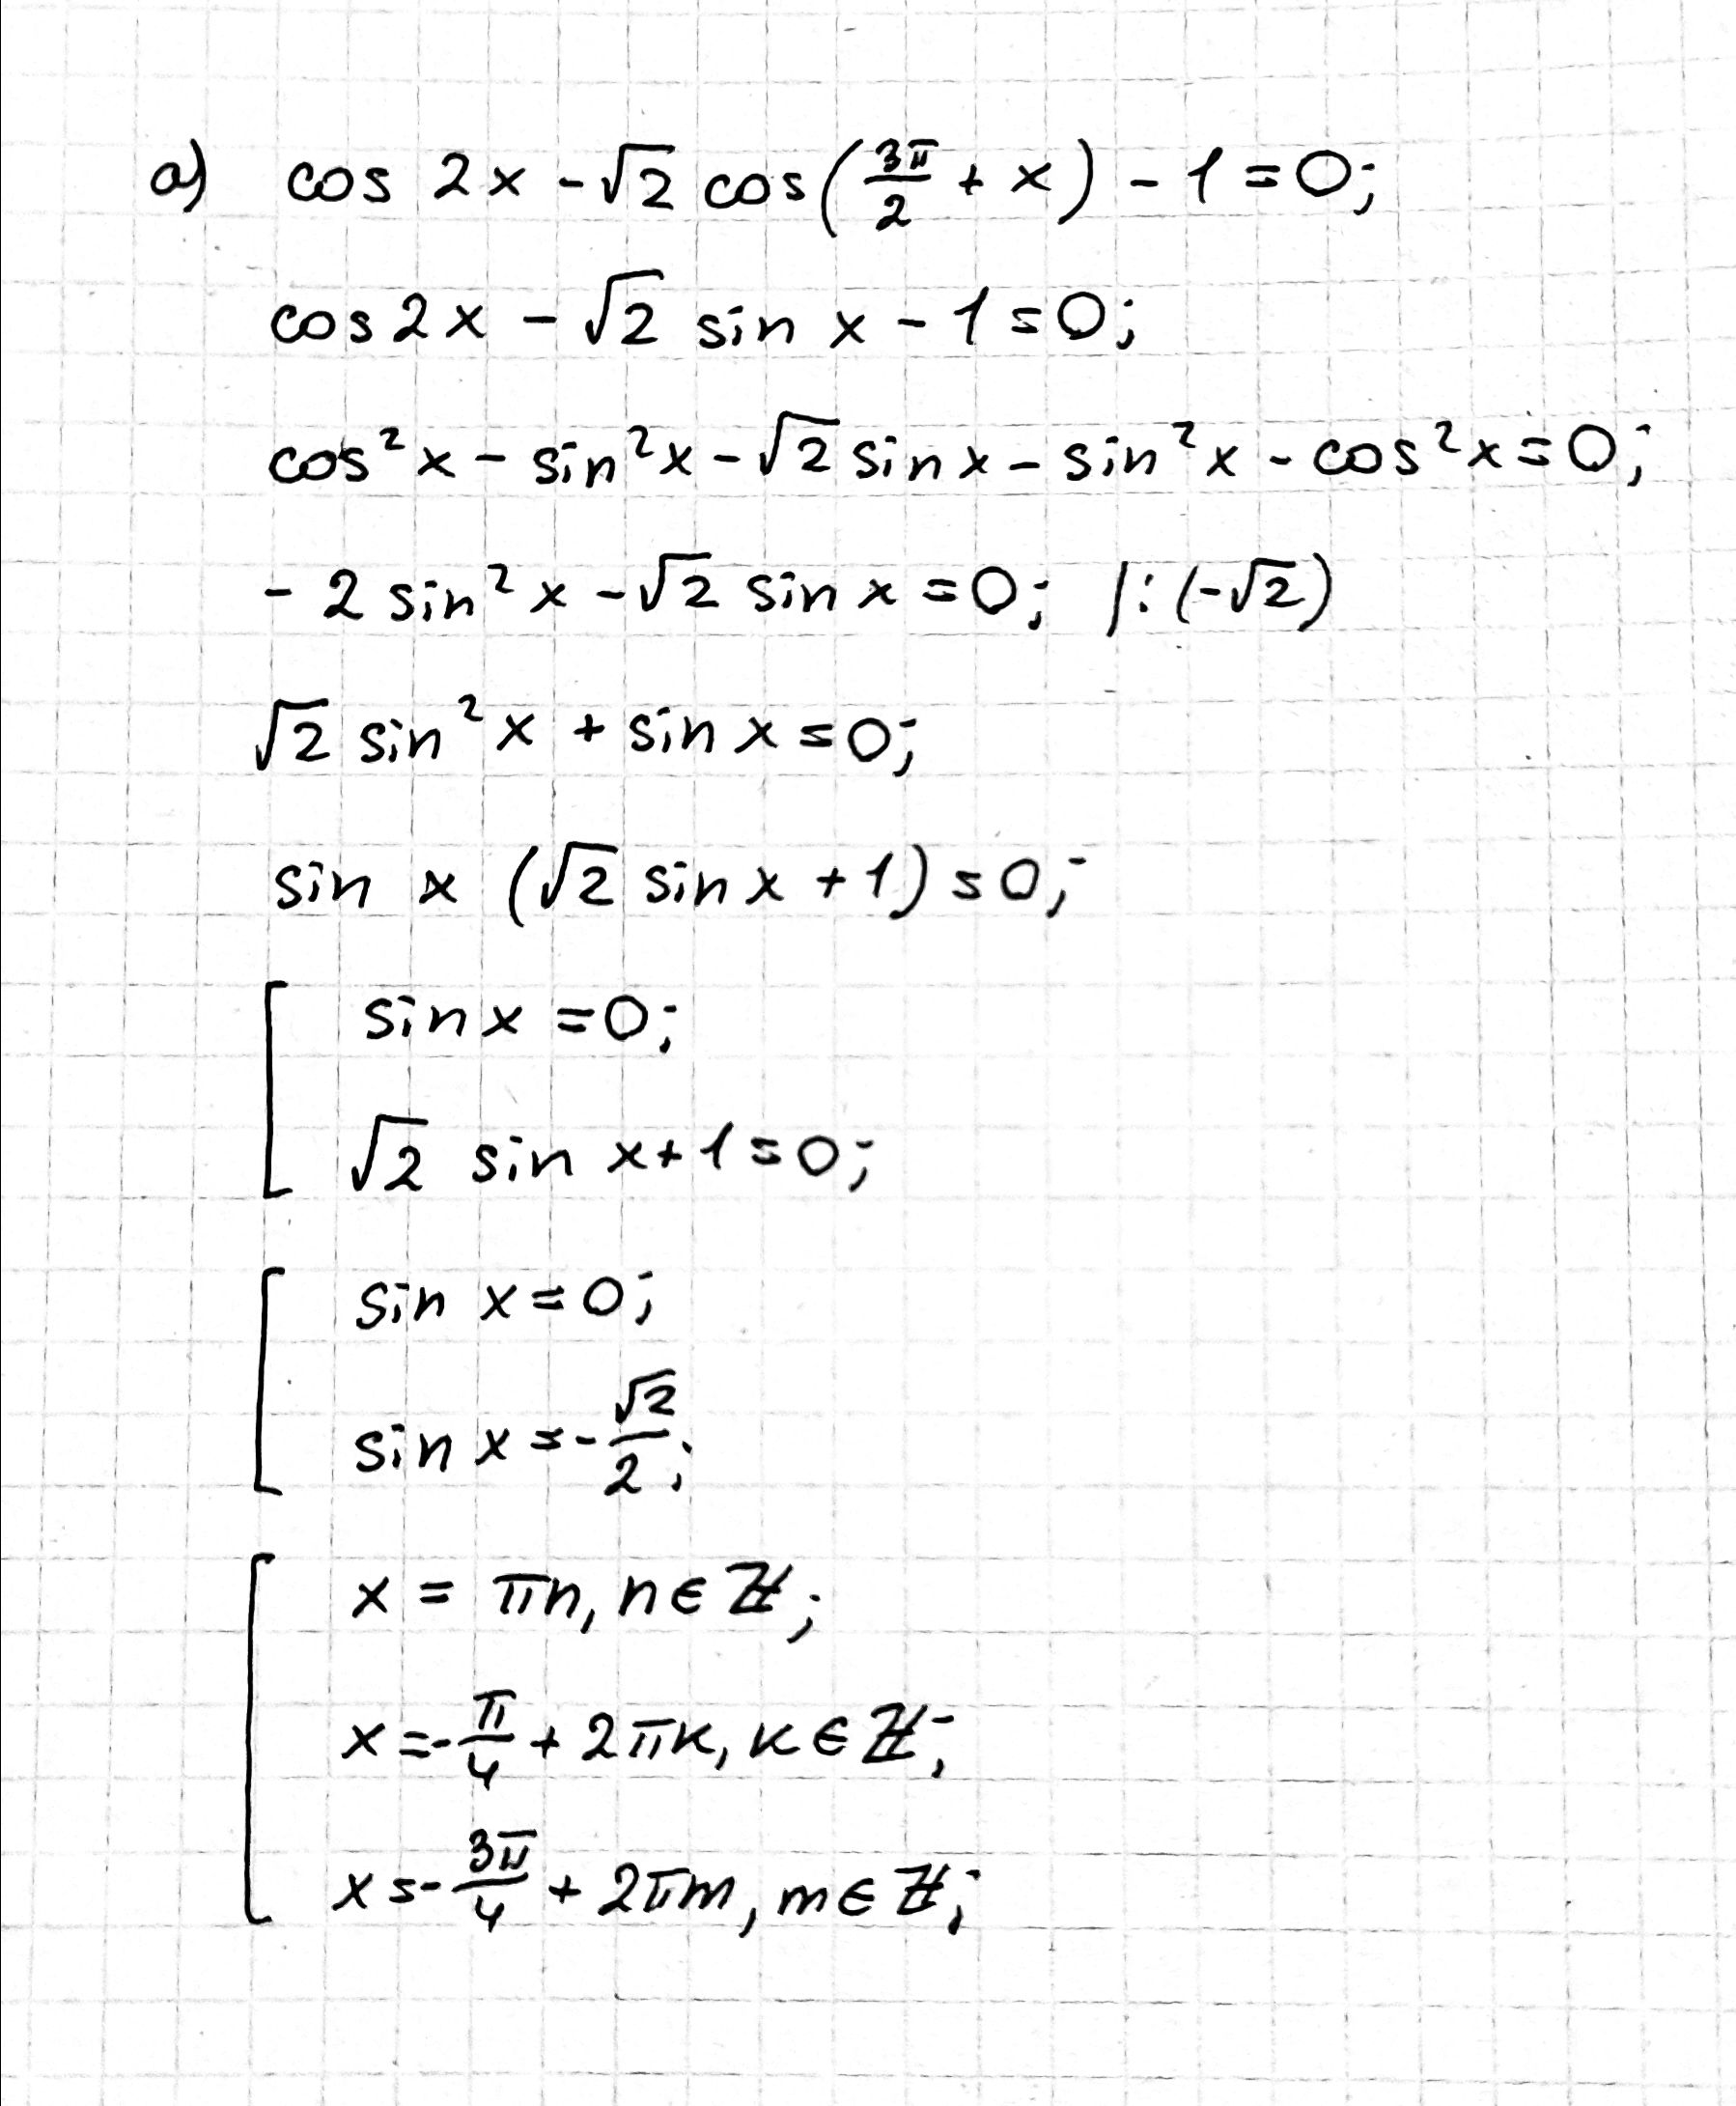 а) cos 2x - √2 cos(3π/2 + x) - 1 = 0;
cos 2x - √2 sin x - 1 = 0;
cos²x - sin²x - √2 sin x - sin²x - cos²x = 0;
- 2 sin²x - √2 sin x = 0; |:(-√2)
√2 sin²x + sin x = 0;
sin x (√2 sin x + 1) = 0;
[ sin x = 0;
√2 sin x + 1 = 0;
[ sin x = 0;
sin x = -√2/2;
[ x = πn, n ∈ ℤ;
x = -π/4 + 2πk, k ∈ ℤ;
x = -3π/4 + 2πm, m ∈ ℤ;